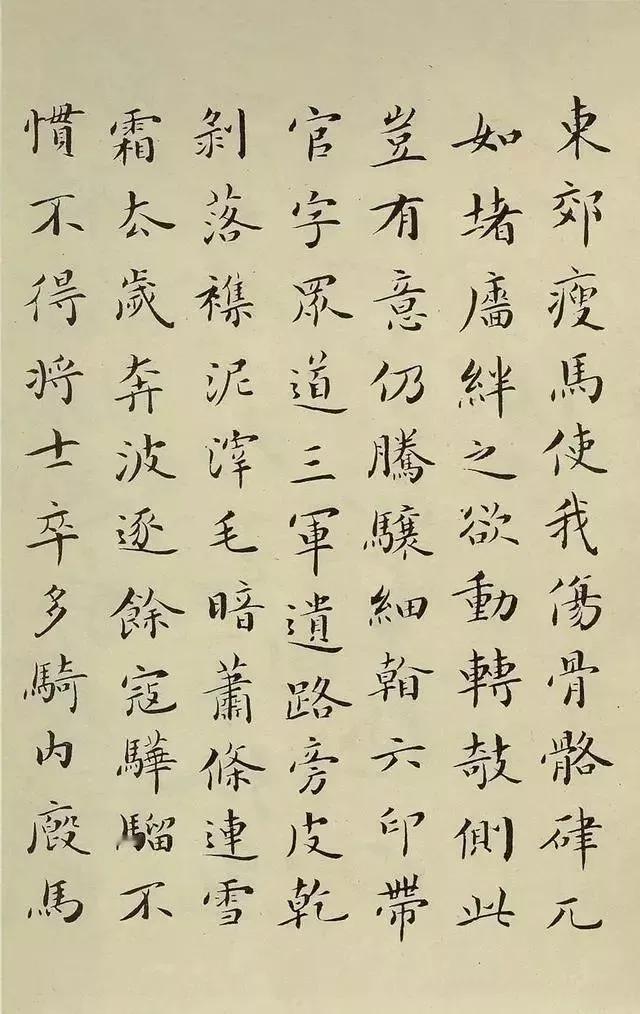 東郊瘦馬使我傷骨骼硉兀
如堵牆絆之欲動轉攲側此
豈有意仍騰驤細看六印帶
官字眾道三軍遺路旁皮乾
剝落雜泥滓毛暗蕭條連雪
霜去歲奔波逐餘寇驊騮不
慣不得將士卒多騎內廄馬